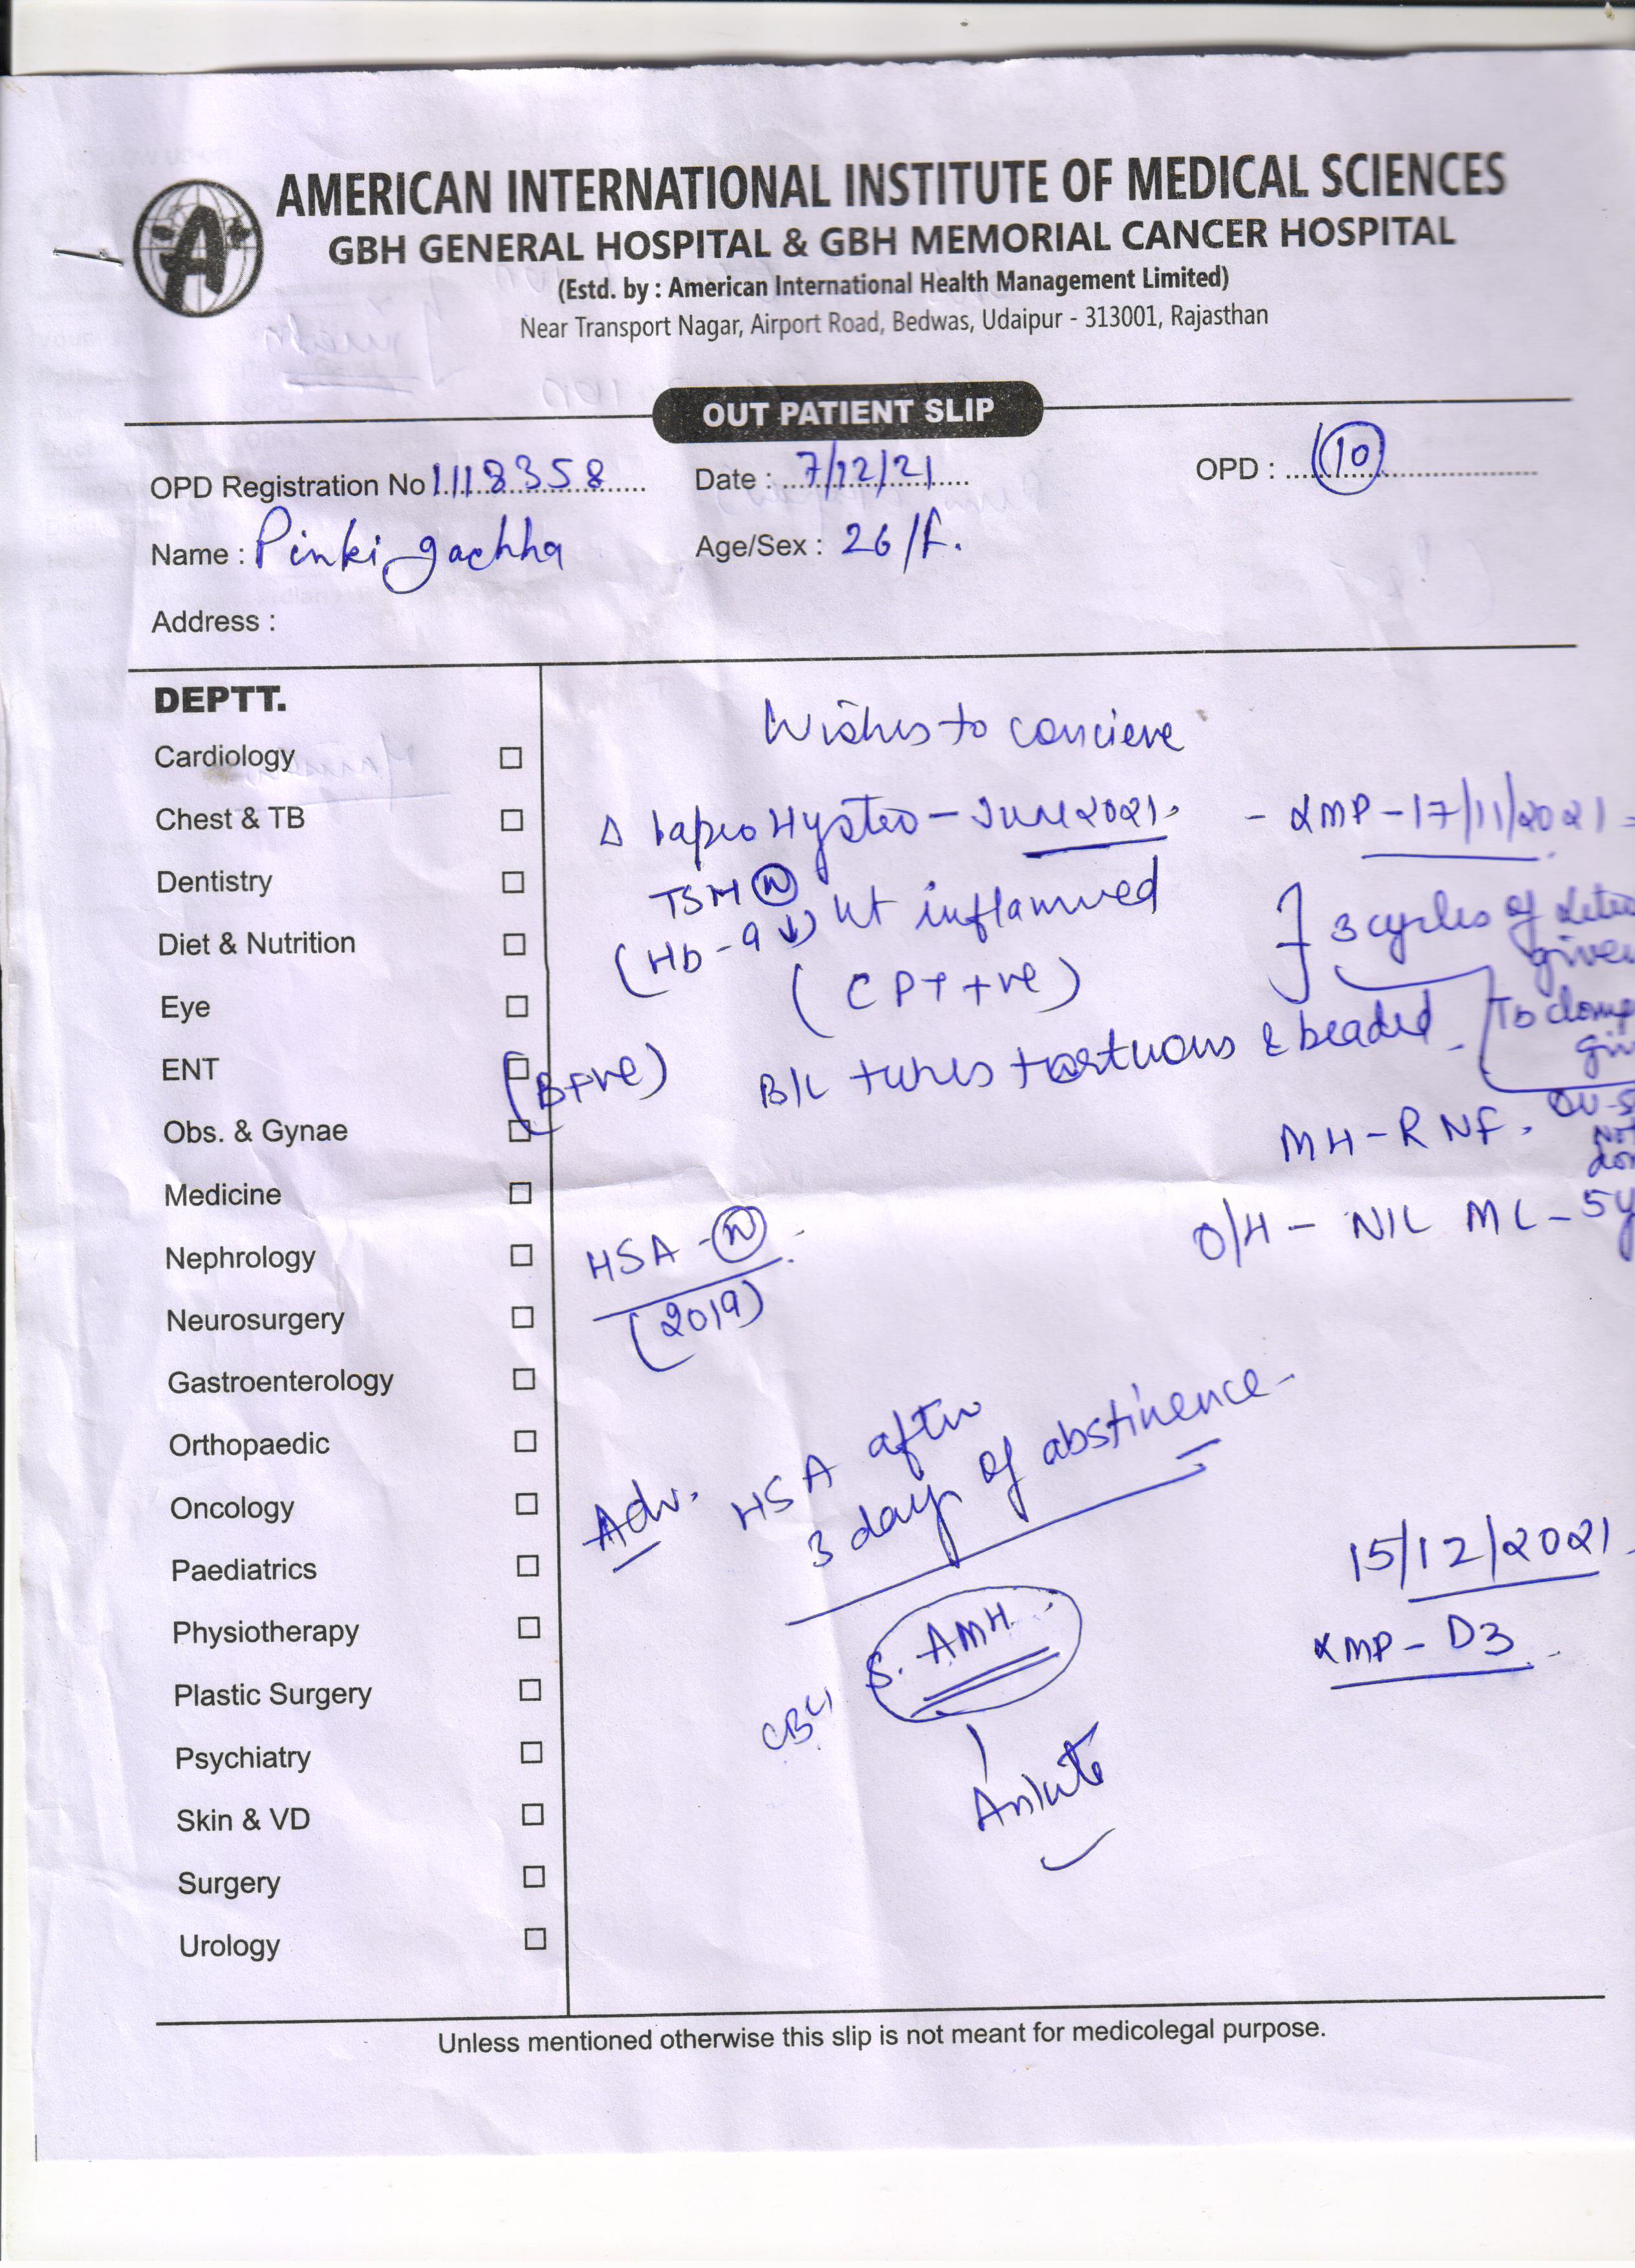 AMERICAN INTERNATIONAL INSTITUTE OF MEDICAL SCIENCES
GBH GENERAL HOSPITAL & GBH MEMORIAL CANCER HOSPITAL
(Estd. by : American International Health Management Limited)
Near Transport Nagar, Airport Road, Bedwas, Udaipur - 313001, Rajasthan
OUT PATIENT SLIP
OPD Registration No 1118358 Date : 7/12/21 OPD : 10
Name : Pinki gachha Age/Sex : 26/f.
Address :
DEPTT.
Cardiology
Chest & TB
Dentistry
Diet & Nutrition
Eye
ENT
Obs. & Gynae
Medicine
Nephrology
Neurosurgery
Gastroenterology
Orthopaedic
Oncology
Paediatrics
Physiotherapy
Plastic Surgery
Psychiatry
Skin & VD
Surgery
Urology
Wishes to concieve
Δ Lapro Hystero - June 2021. - LMP - 17/11/2021
TSH (N) Ut inflammed
(Hb - 9 ↓)
(CPT +ve)
3 cycles of
given
(B+ve) B/L tubes tortuous & beaded
MH - RNF.
O/H - NIL ML - 5y
HSA - (N)
(2019)
Adv. HSA after
3 days of abstinence
S. AMH
15/12/2021
LMP - D3
Unless mentioned otherwise this slip is not meant for medicolegal purpose.